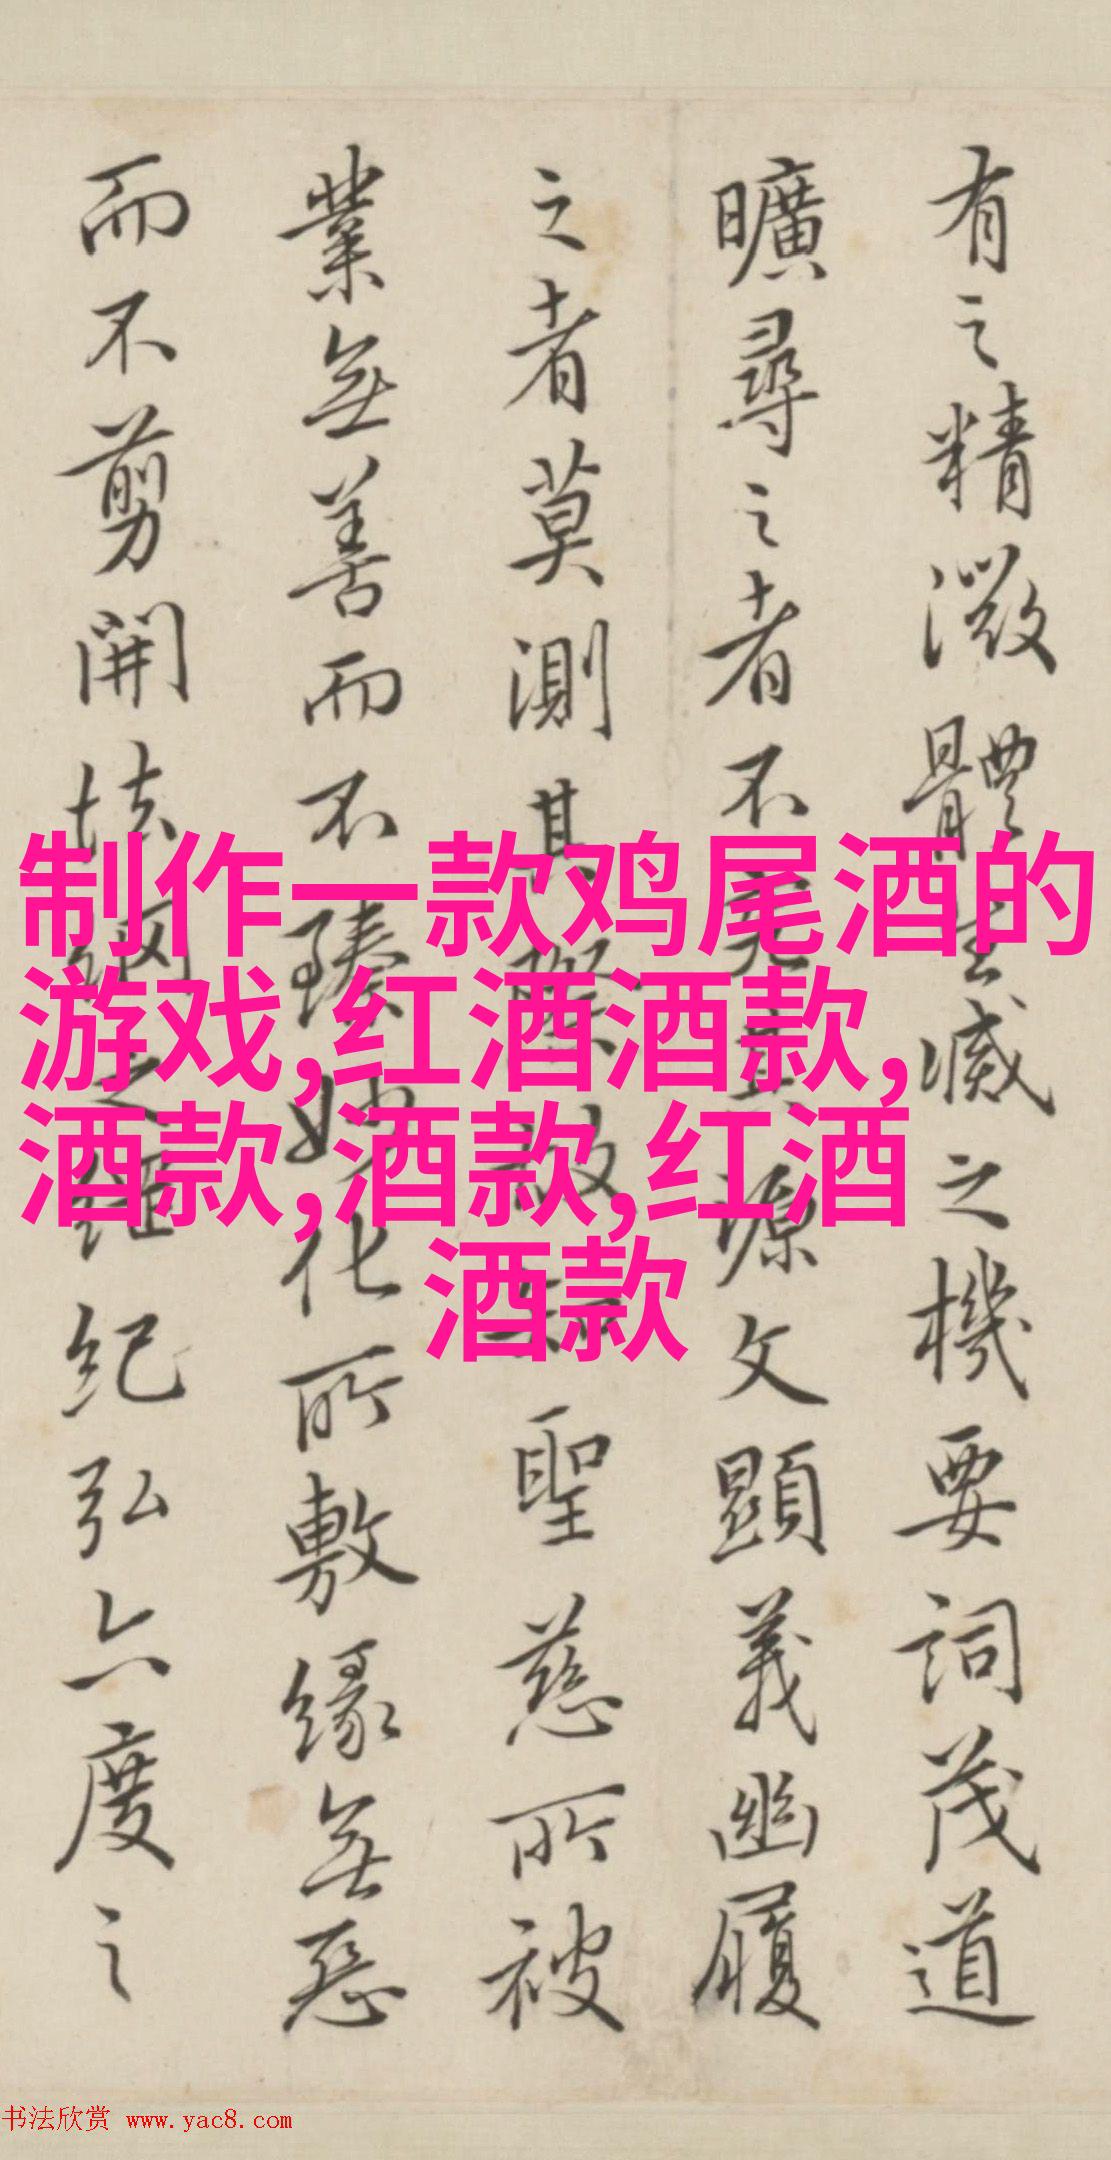 有之精微體生滅之機要詞茂道
曠尋之者不究其源文顯義幽履
之者莫測其際故知聖慈所被
業無善而不臻妙化所敷緣無惡
而不剪開法網之綱紀弘六度之
制作一款鸡尾酒的
游戏,红酒酒款,
酒款,酒款,红酒
酒款
书法欣赏 www.yac8.com